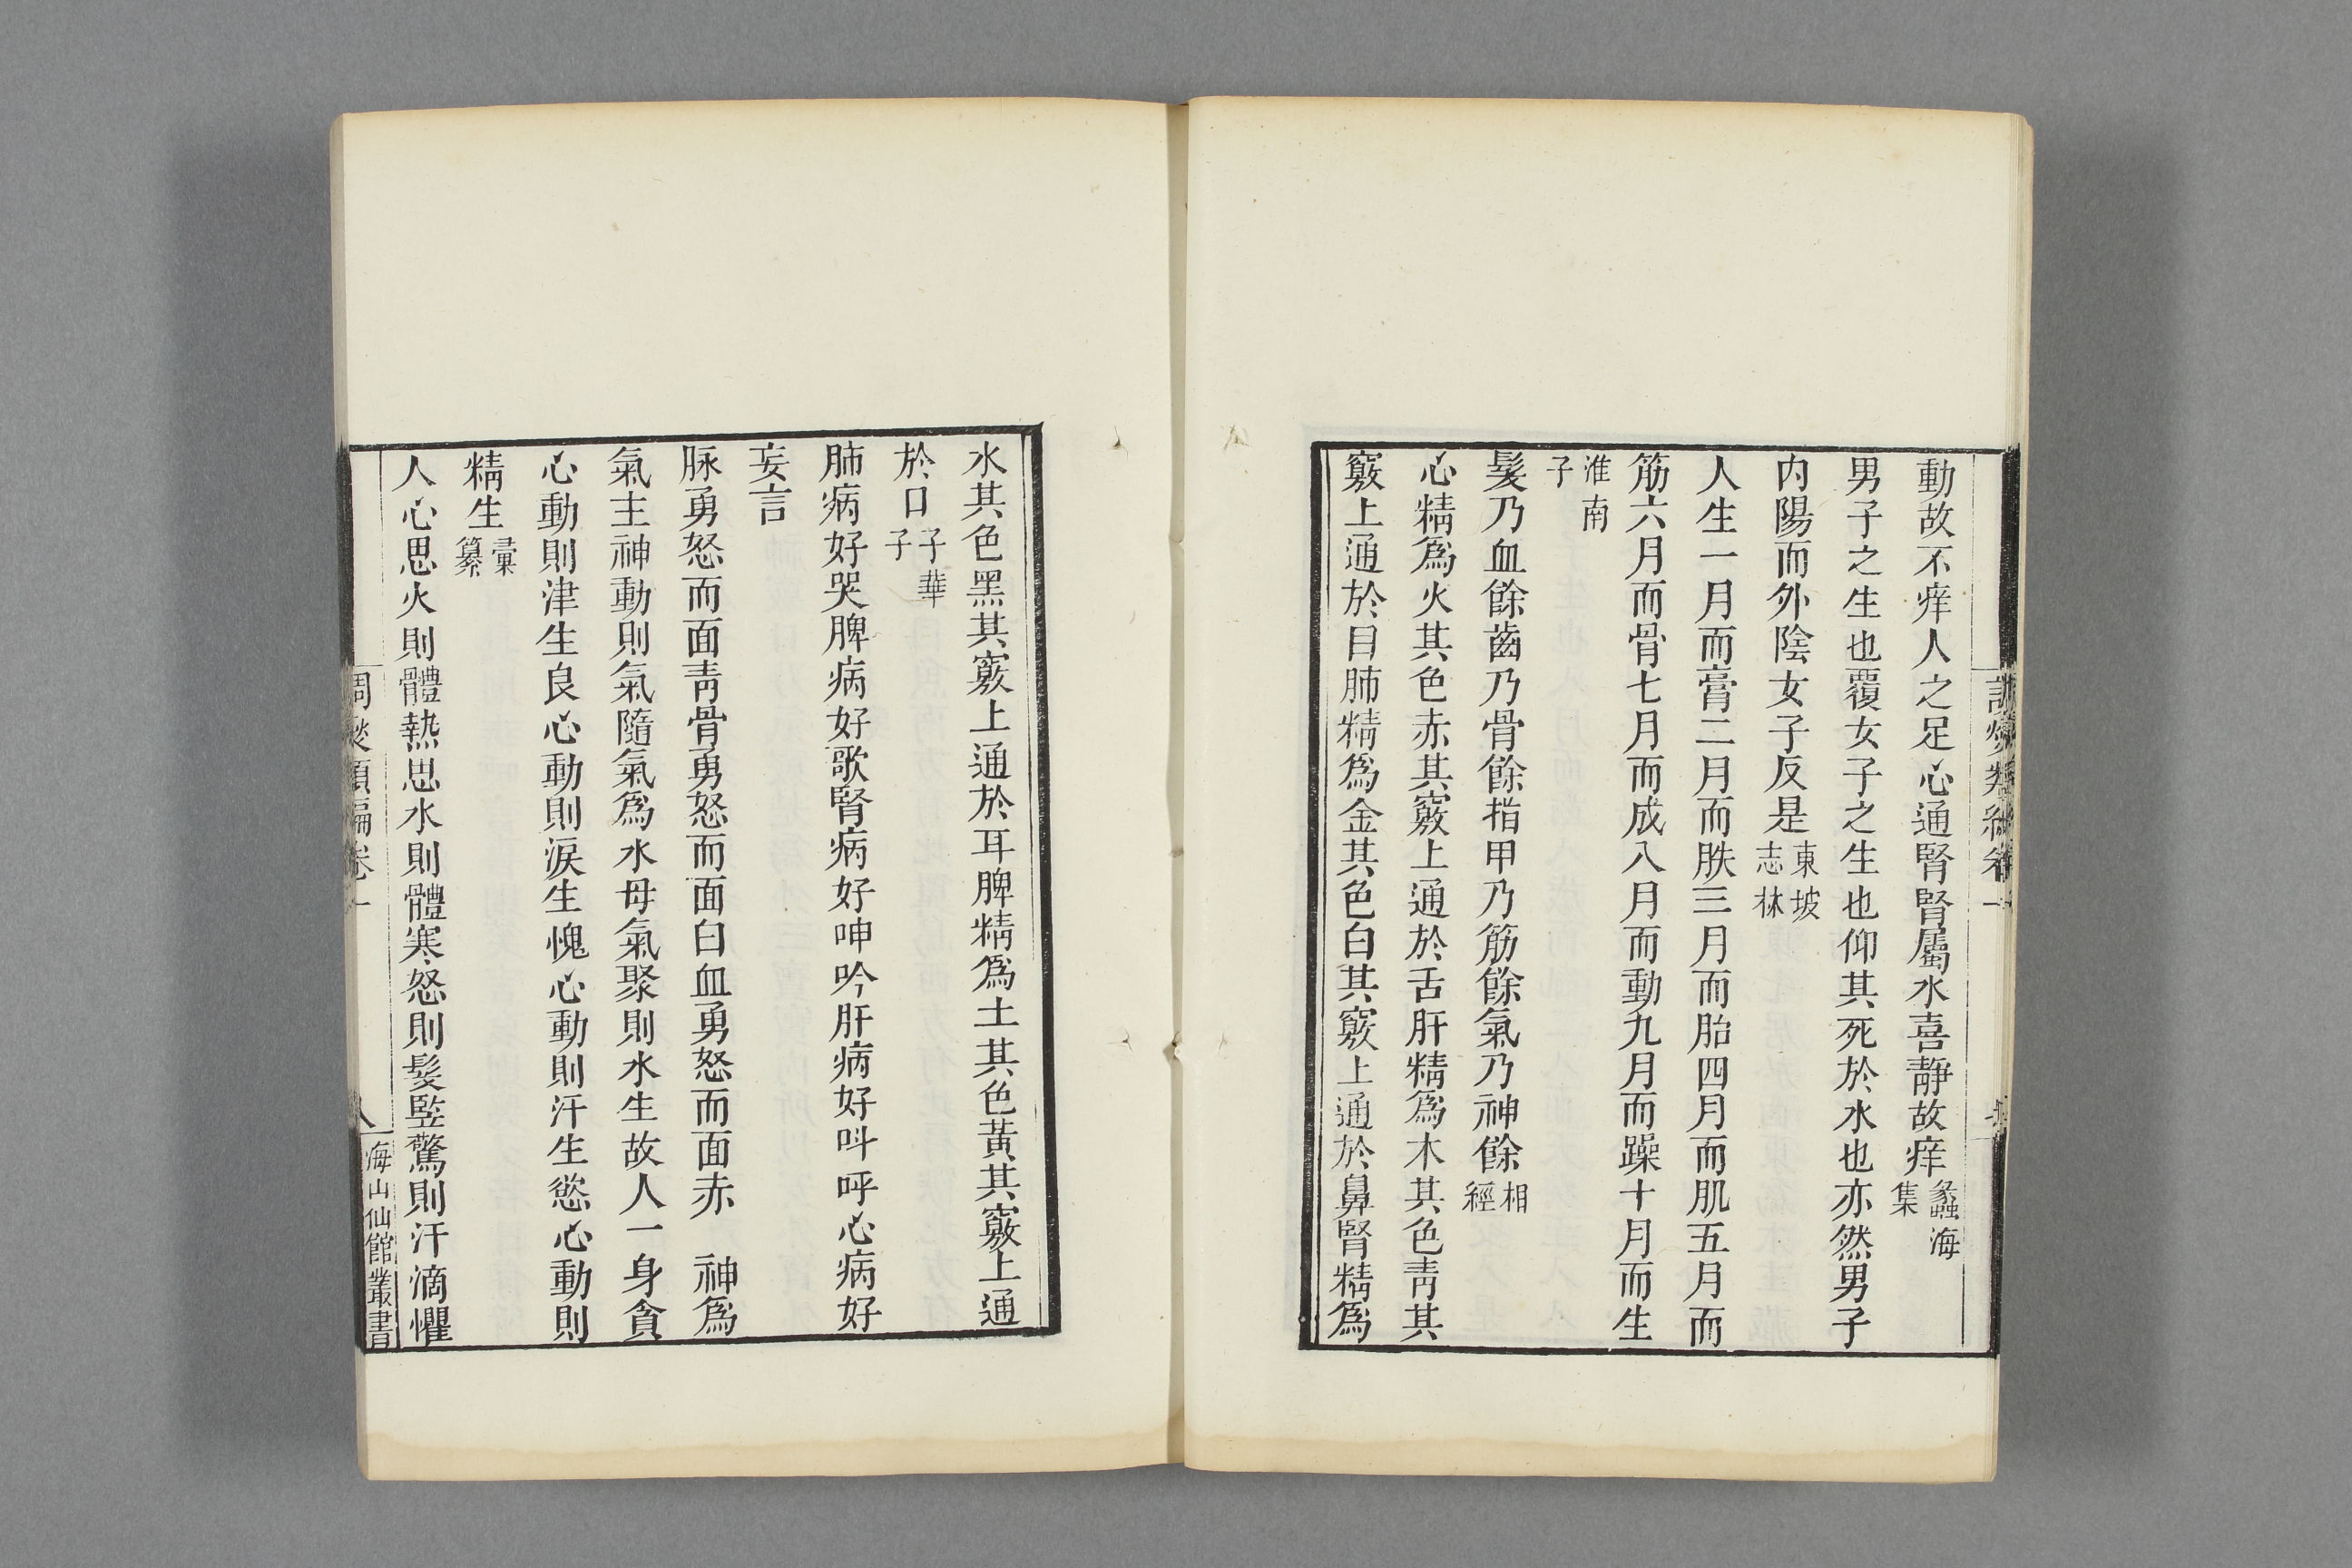 動故不痒人之足心通腎腎屬水喜靜故痒蠡海集
男子之生也覆女子之生也仰其死於水也亦然男子
内陽而外陰女子反是東坡志林
人生一月而膏二月而胅三月而胎四月而肌五月而
筋六月而骨七月而成八月而動九月而躁十月而生
淮南子
髮乃血餘齒乃骨餘指甲乃筋餘氣乃神餘相經
心精爲火其色赤其竅上通於舌肝精爲木其色靑其
竅上通於目肺精爲金其色白其竅上通於鼻腎精爲
水其色黑其竅上通於耳脾精爲土其色黃其竅上通
於口子華子
肺病好哭脾病好歌腎病好呻吟肝病好呌呼心病好
妄言
脉勇怒而面靑骨勇怒而面白血勇怒而面赤 神爲
氣主神動則氣隨氣爲水母氣聚則水生故人一身貪
心動則津生良心動則淚生愧心動則汗生慾心動則
精生彙纂
人心思火則體熱思水則體寒怒則髮竪驚則汗滴懼
調燮類編卷一
八
海山仙館叢書